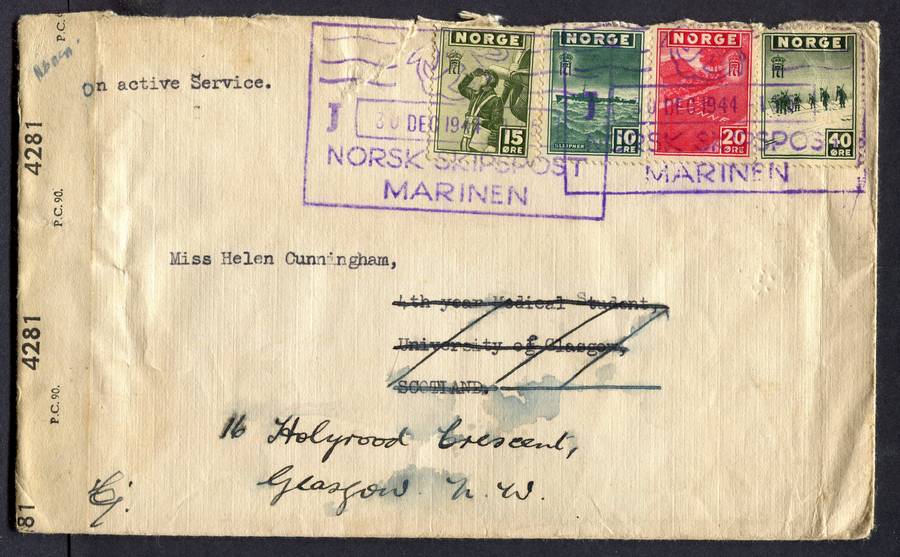 On active Service.
NORGE
15 ØRE
NORGE
SLEIPNER
10 ØRE
NORGE
20 ØRE
NORGE
40 ØRE
J
30 DEC 1944
NORSK SKIPSPOST
MARINEN
J
DEC 1944
NORSK SKIPSPOST
MARINEN
P.C.
4281
P.C. 90.
4281
P.C. 90.
81
Miss Helen Cunningham,
4th year Medical Student,
University of Glasgow,
SCOTLAND.
16 Holyrood Crescent,
Glasgow. N. W.